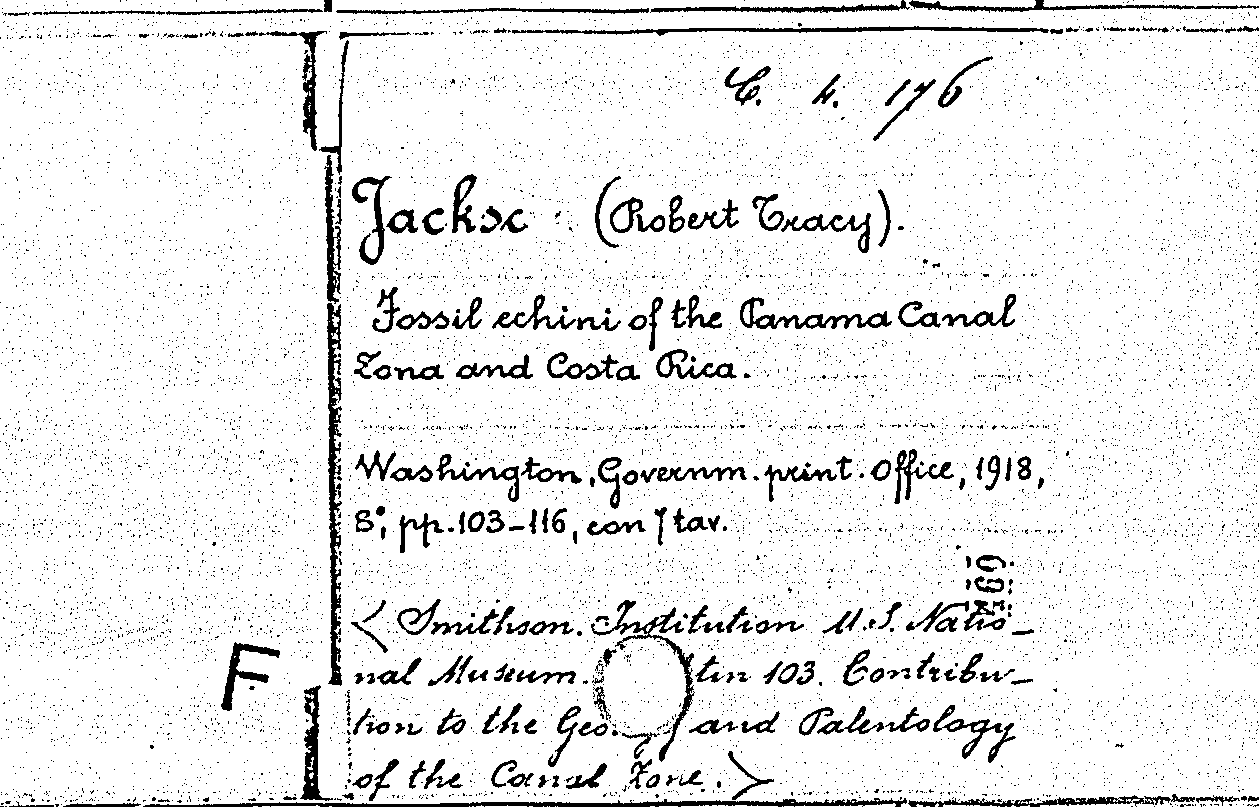 C. 4. 176
Jackso (Robert Tracy).
Fossil echini of the Panama Canal
Zona and Costa Rica.
Washington, Governm. print. Office, 1918,
8°, pp. 103-116, con 7 tav.
69
< Smithson. Institution U.S. Natio-
nal Museum. tin 103. Contribu-
tion to the Geo. and Palentology
of the Canal Zone. >
F